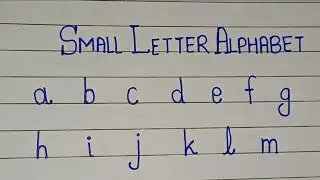 SMALL LETTER ALPHABET
a b c d e f g
h i j k l m